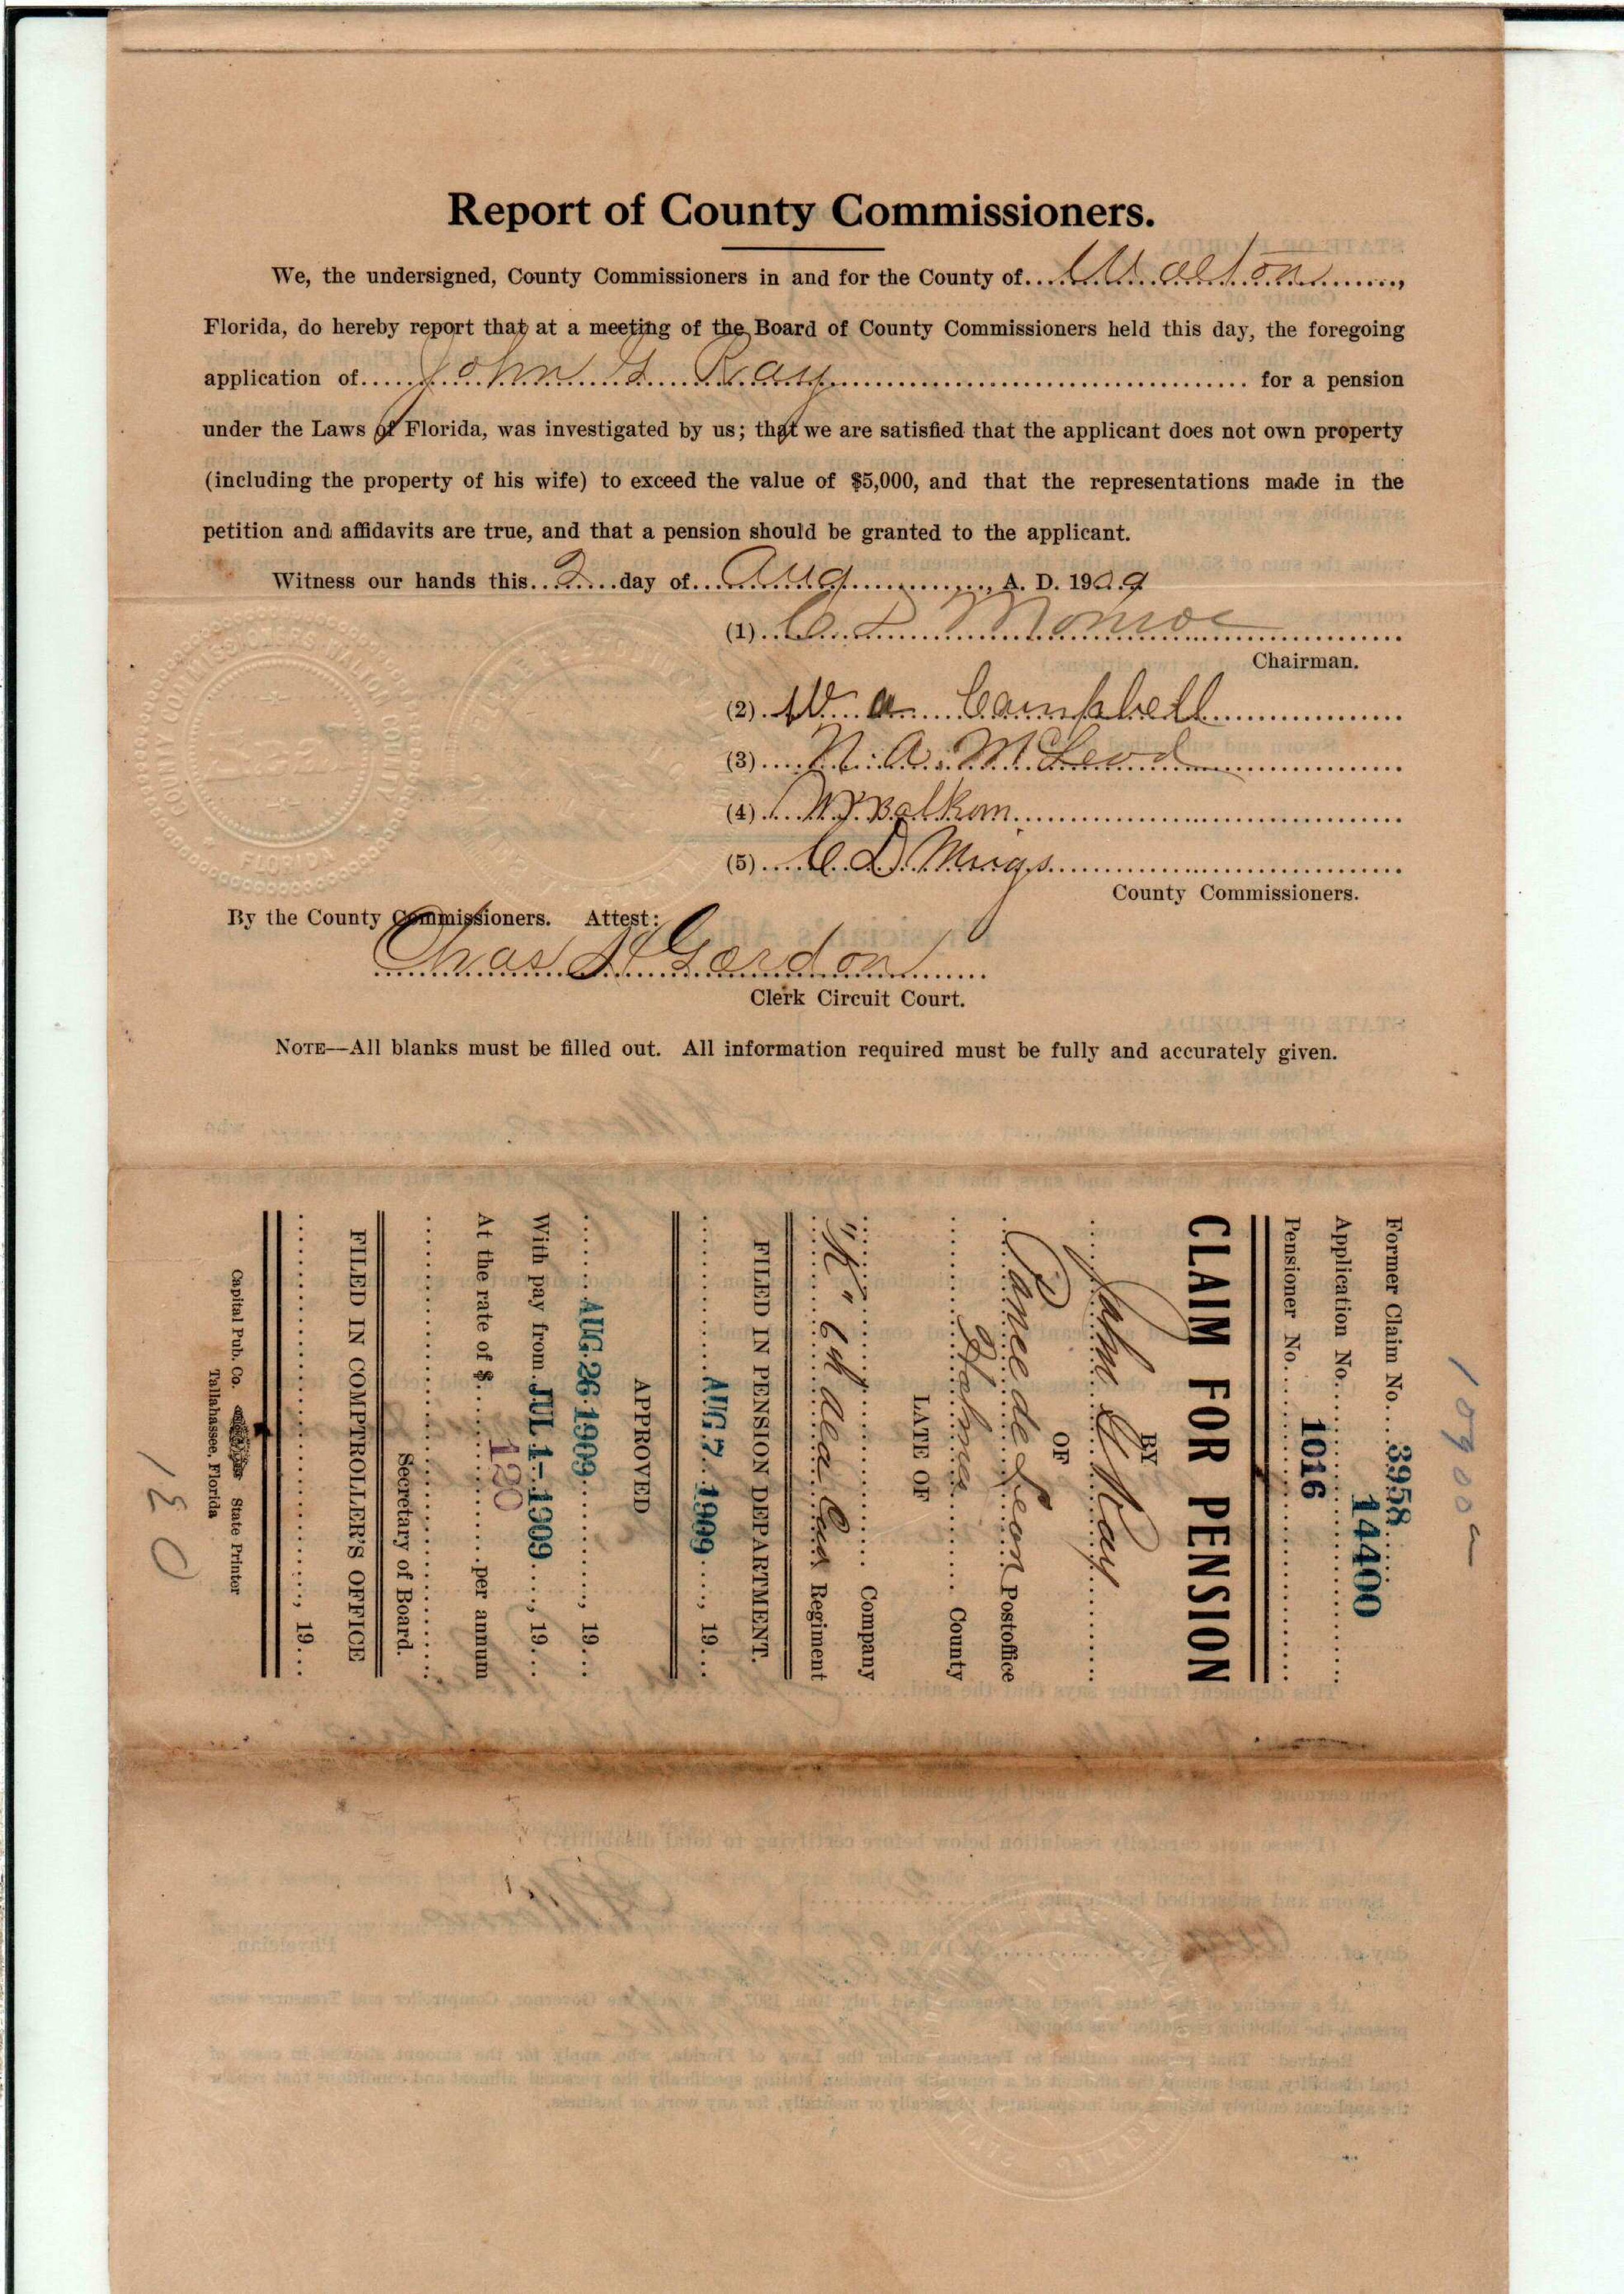 Report of County Commissioners.
We, the undersigned, County Commissioners in and for the County of Walton,
Florida, do hereby report that at a meeting of the Board of County Commissioners held this day, the foregoing
application of John G Ray for a pension
under the Laws of Florida, was investigated by us; that we are satisfied that the applicant does not own property
(including the property of his wife) to exceed the value of $5,000, and that the representations made in the
petition and affidavits are true, and that a pension should be granted to the applicant.
Witness our hands this 2 day of Aug, A. D. 1909
(1) Monroe
Chairman.
(2) W a Campbell
(3) N. A. McLeod
(4) Balkom
(5) C D Meigs
County Commissioners.
By the County Commissioners. Attest:
Chas H Gordon
Clerk Circuit Court.
NOTE—All blanks must be filled out. All information required must be fully and accurately given.
COUNTY COMMISSIONERS WALTON COUNTY
FLORIDA
Former Claim No. 3958
Application No. 14400
Pensioner No. 1016
CLAIM FOR PENSION
BY
John G Ray
OF
Ponce de Leon Postoffice
Holmes County
LATE OF
Company
"K" 6th ala Cav Regiment
FILED IN PENSION DEPARTMENT.
AUG 7 1909, 19
APPROVED
AUG 26 1909, 19
With pay from JUL 1-1909, 19
At the rate of $ 120 per annum
Secretary of Board.
FILED IN COMPTROLLER'S OFFICE
, 19
Capital Pub. Co. State Printer
Tallahassee, Florida
130